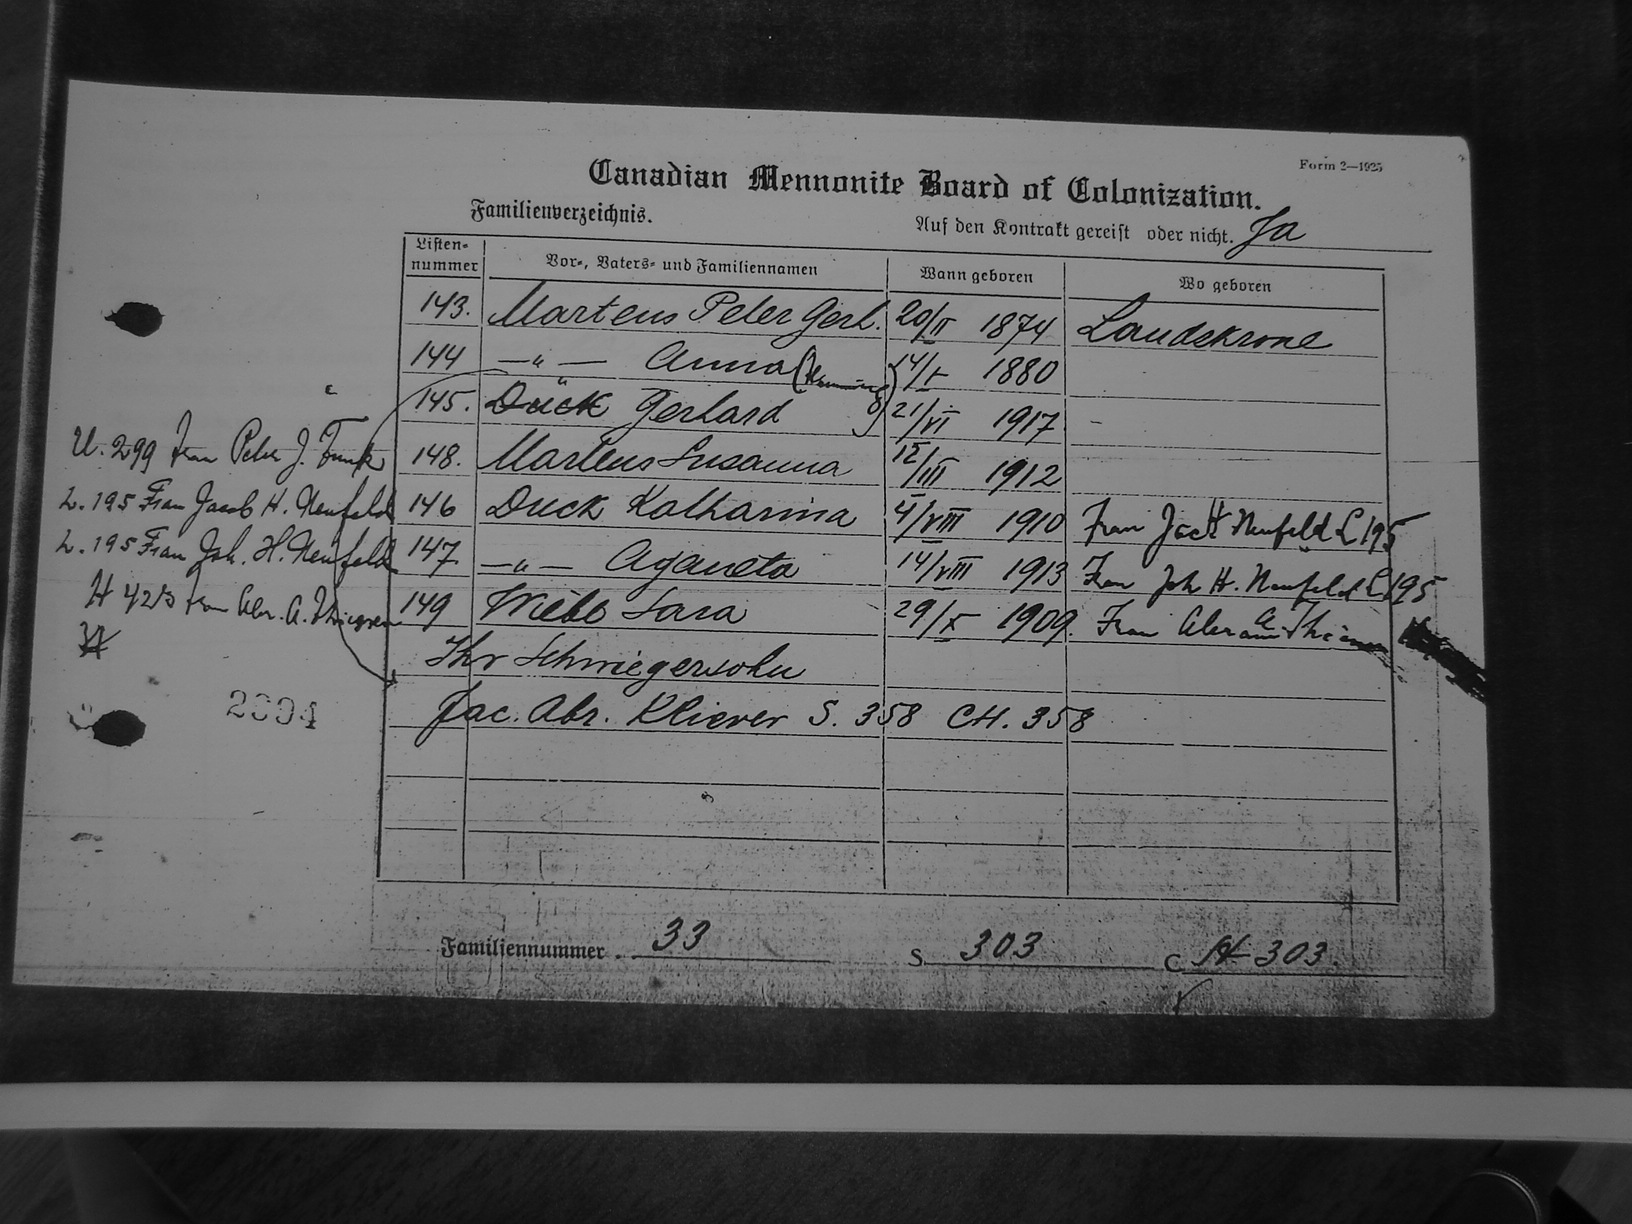 Form 2—1925
Canadian Mennonite Board of Colonization.
Familienverzeichnis.
Auf den Kontrakt gereist oder nicht. Ja
Listen-nummer Vor-, Vaters- und Familiennamen Wann geboren Wo geboren
143. Martens Peter Gerh. 20/II 1874 Landskrone
144 —„— Anna 14/I 1880
145. Dück Gerhard 21/VI 1917 -
U. 299 Frau Peter J. Funk 148. Martens Susanna 12/III 1912
L. 195 Frau Jacob H. Neufeld 146 Duck Katharina 4/VIII 1910 Frau Jac H Neufeld L 195
L. 195 Frau Joh. H. Neufeld 147 —„— Aganeta 14/VIII 1913 Frau Joh H. Neufeld L 195
H 425 Frau Abr. A. Thiessen 149 Wiebe Sara 29/X 1909. Frau Abram A Thiessen
Ihr Schwiegersohn
Jac. Abr. Kliever S. 358 CH. 358
2394
Familiennummer. 33 S. 303 C H 303.